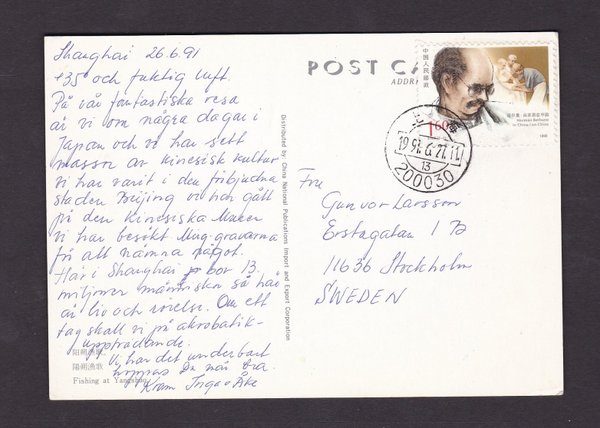 Shanghai 26.6.91
+35 och fuktig luft.
På vår fantastiska resa
är vi om några dagar i
Japan och vi har sett
massor av kinesisk kultur
vi har varit i den förbjudna
staden Beijing vi har gått
på den Kinesiska Muren
vi har besökt Ming-gravarna
för att nämna något.
Här i Shanghai bor 13
miljoner människor så här
är liv och rörelse. Om ett
tag skall vi på akrobatik-
uppträdande.
Vi har det underbart
hoppas Du mår bra.
Kram Inga o Åke
阳朔渔歌
陽朔漁歌
Fishing at Yangshuo
Distributed by: China National Publications Import and Export Corporation
POST CA
ADDRE
中国人民邮政
1.60
1990
1991.6.27.11
13
200030
Fru
Gunvor Larsson
Erstagatan 1B
11636 Stockholm
SWEDEN